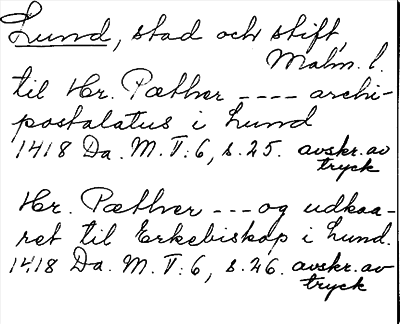 Lund, stad och stift,
Malm. l.
til Hr. Pæther ---- archi-
postalatus i Lund
1418 Da. M. T: 6, s. 25. avskr. av
tryck
Hr. Pæther --- og udkaa-
ret til Erkebiskop i Lund.
1418 Da. M. T: 6, s. 26. avskr. av
tryck